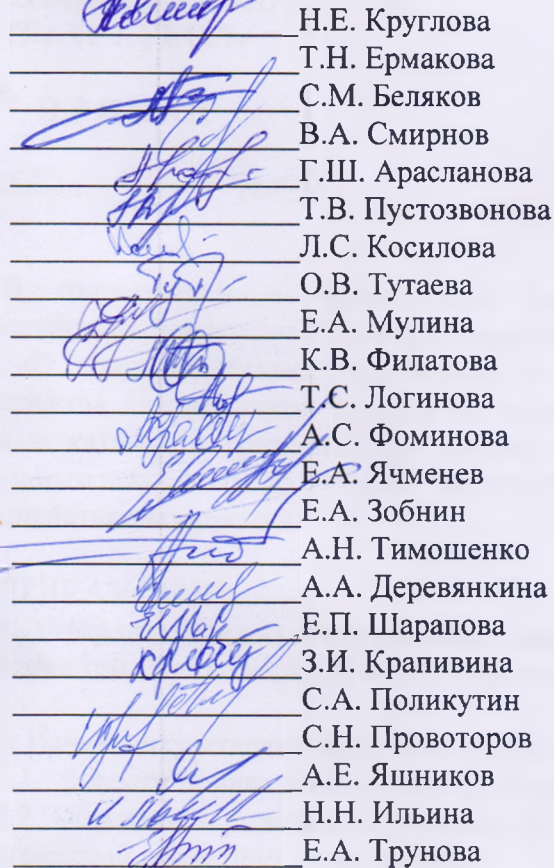 Н.Е. Круглова
Т.Н. Ермакова
С.М. Беляков
В.А. Смирнов
Г.Ш. Арасланова
Т.В. Пустозвонова
Л.С. Косилова
О.В. Тутаева
Е.А. Мулина
К.В. Филатова
Т.С. Логинова
А.С. Фоминова
Е.А. Ячменев
Е.А. Зобнин
А.Н. Тимошенко
А.А. Деревянкина
Е.П. Шарапова
З.И. Крапивина
С.А. Поликутин
С.Н. Провоторов
А.Е. Яшников
Н.Н. Ильина
Е.А. Трунова